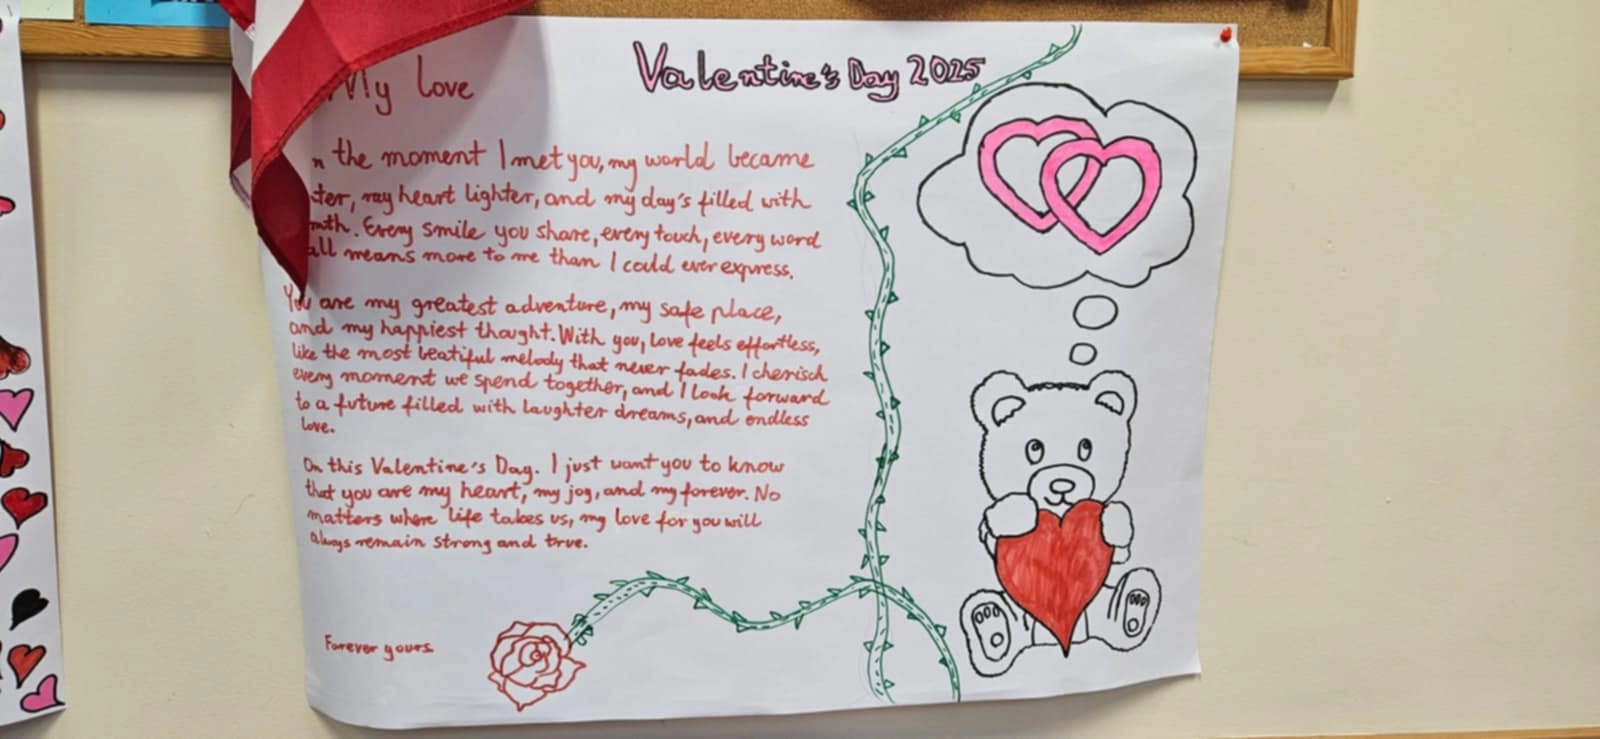 My love
Valentine's Day 2025
the moment I met you, my world became
ter, my heart lighter, and my day's filled with
mth. Every smile you share, every touch, every word
all means more to me than I could ever express.
You are my greatest adventure, my safe place,
and my happiest thought. With you, love feels effortless,
like the most beatiful melody that never fades. I cherisch
every moment we spend together, and I look forward
to a future filled with laughter dreams, and endless
love.
On this Valentine's Day. I just want you to know
that you are my heart, my joy, and my forever. No
matters where life takes us, my love for you will
always remain strong and true.
Forever yours